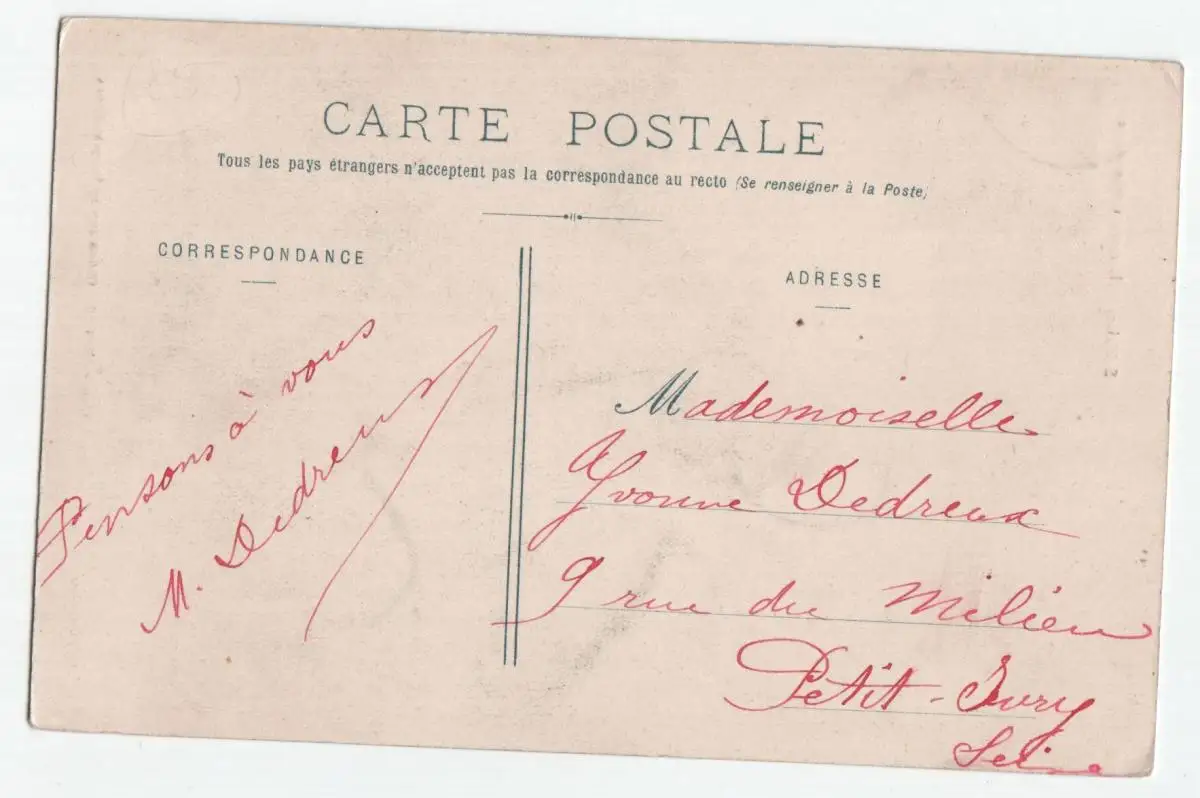 CARTE POSTALE
Tous les pays étrangers n'acceptent pas la correspondance au recto (Se renseigner à la Poste)
CORRESPONDANCE
ADRESSE
Pensons à vous
M. Dedreux
Mademoiselle
Yvonne Dedreux
9 rue du Milieu
Petit-Ivry
Seine